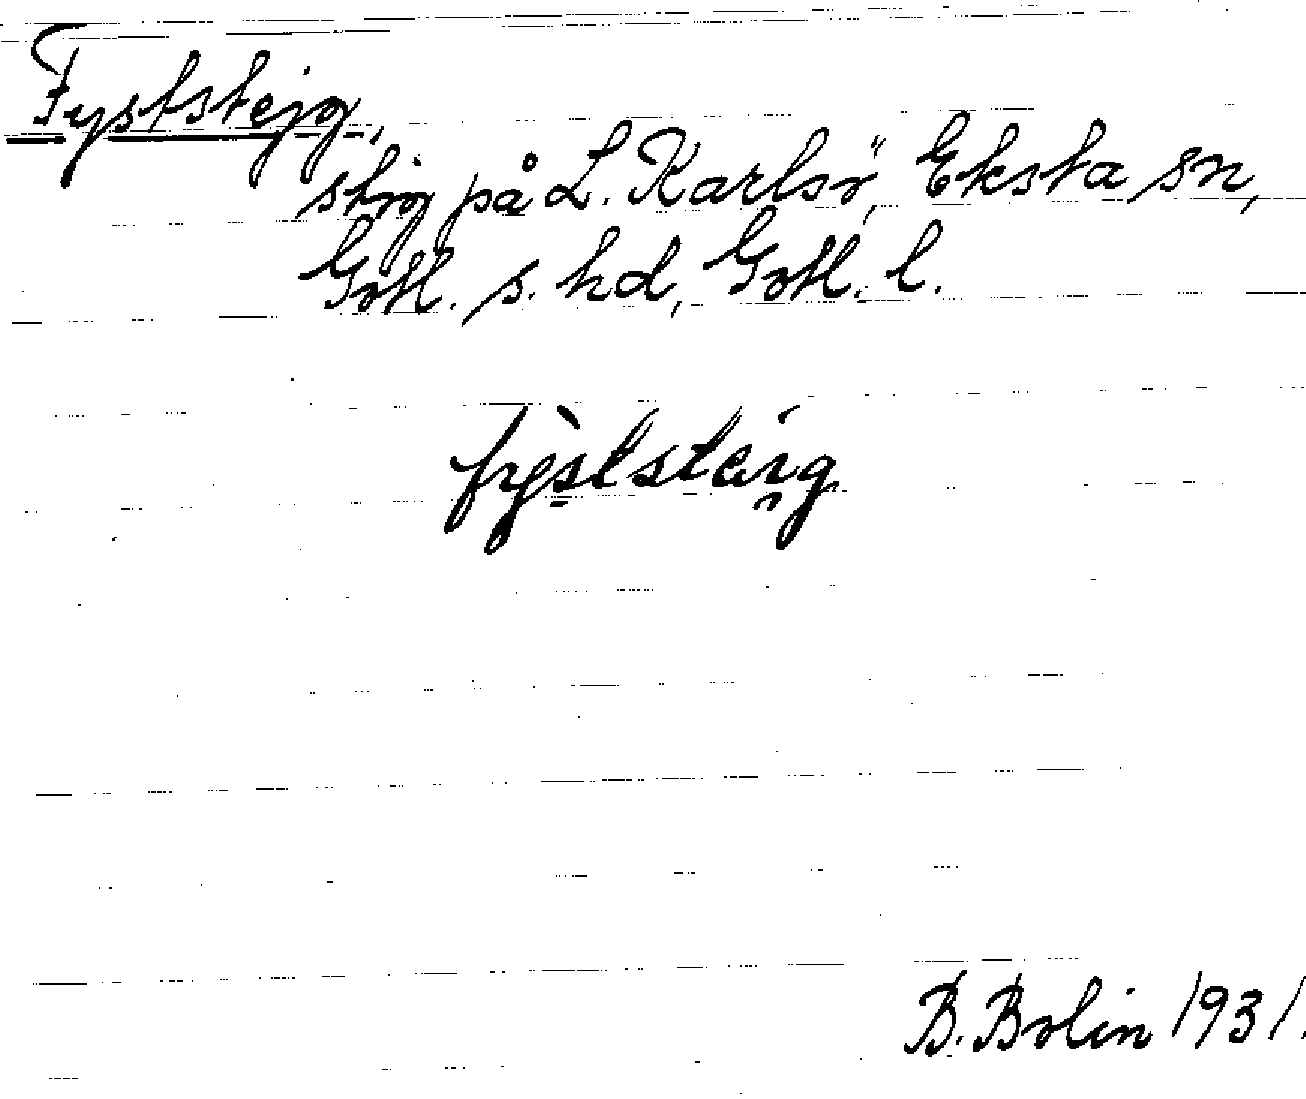 Fyststeig,
stig på L. Karlsö, Eksta sn,
Gotl. s. hd, Gotl. l.
fỳststei̯g
B. Bolin 1931.